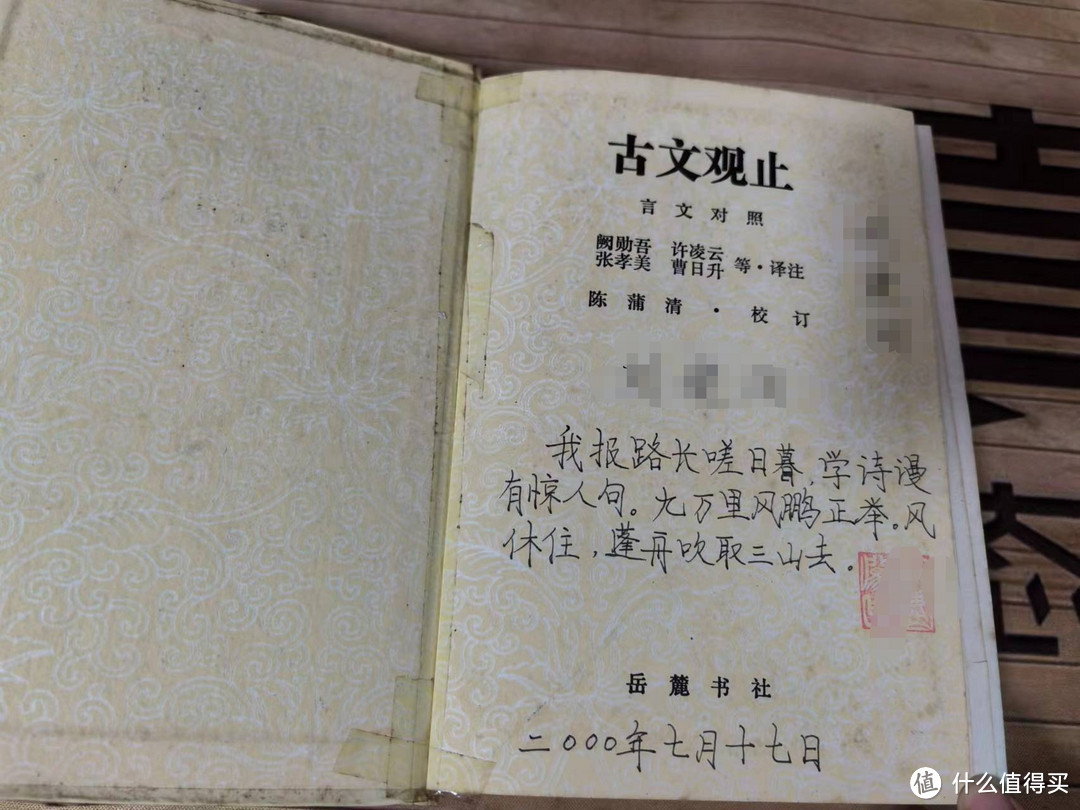 古文观止
言文对照
阙勋吾 许凌云
张孝美 曹日升 等·译注
陈蒲清·校订
我报路长嗟日暮，学诗漫
有惊人句。九万里风鹏正举。风
休住，蓬舟吹取三山去。
岳麓书社
二000年七月十七日
值 什么值得买